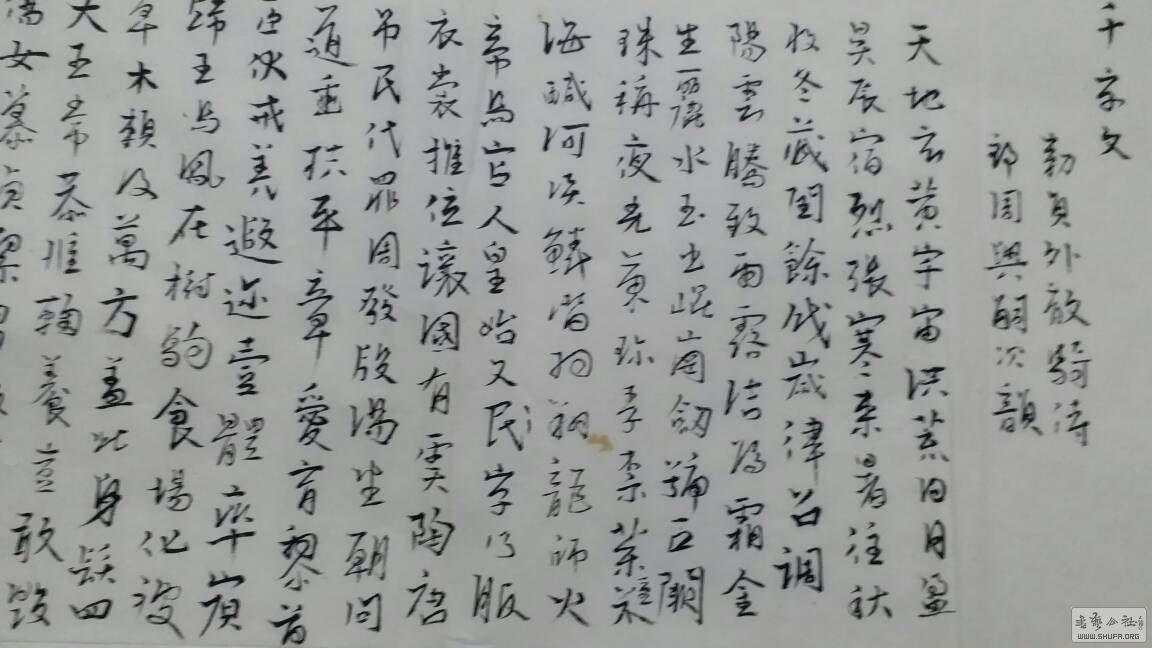 千字文
勅員外散騎侍
郎周興嗣次韻
天地玄黃宇宙洪荒日月盈
昃辰宿列張寒來暑往秋
收冬藏閏餘成歲律呂調
陽雲騰致雨露結為霜金
生麗水玉出崑崗劍號巨闕
珠稱夜光菓珍李柰菜
海鹹河淡鱗潛羽翔龍師火
帝鳥官人皇始文民字乃服
衣裳推位讓國有虞陶唐
吊民伐罪周發殷湯坐朝問
道垂拱平章愛育黎首
臣伏戎羌遐迩壹體率賓
歸王鳴鳳在樹駒食場化被
草木賴及萬方蓋此身髮四
大五常恭惟鞠養豈敢毀
傷女慕貞潔男
書藝公社
WWW.SHUFA.ORG